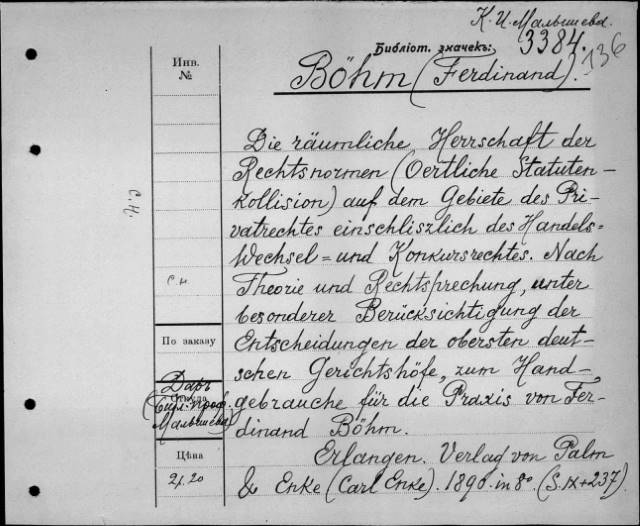 К. И. Малышева.
Библіот. значекъ: 3384. 136
Инв.
№
Böhm (Ferdinand).
Die räumliche Herrschaft der
Rechtsnormen (Oertliche Statuten-
kollision) auf dem Gebiete des Pri-
vatrechtes einschliszlich des Handels=
Wechsel = und Konkursrechtes. Nach
Theorie und Rechtsprechung, unter
besonderer Berücksichtigung der
Entscheidungen der obersten deut-
schen Gerichtshöfe, zum Hand-
gebrauche für die Praxis von Fer-
dinand Böhm.
Erlangen. Verlag von Palm
& Enke (Carl Enke). 1890. in 8º. (S. IX+237).
с.н.
с.н.
По заказу
Даръ
Откуда
Проф.
Малышева
Цѣна
2 р. 20